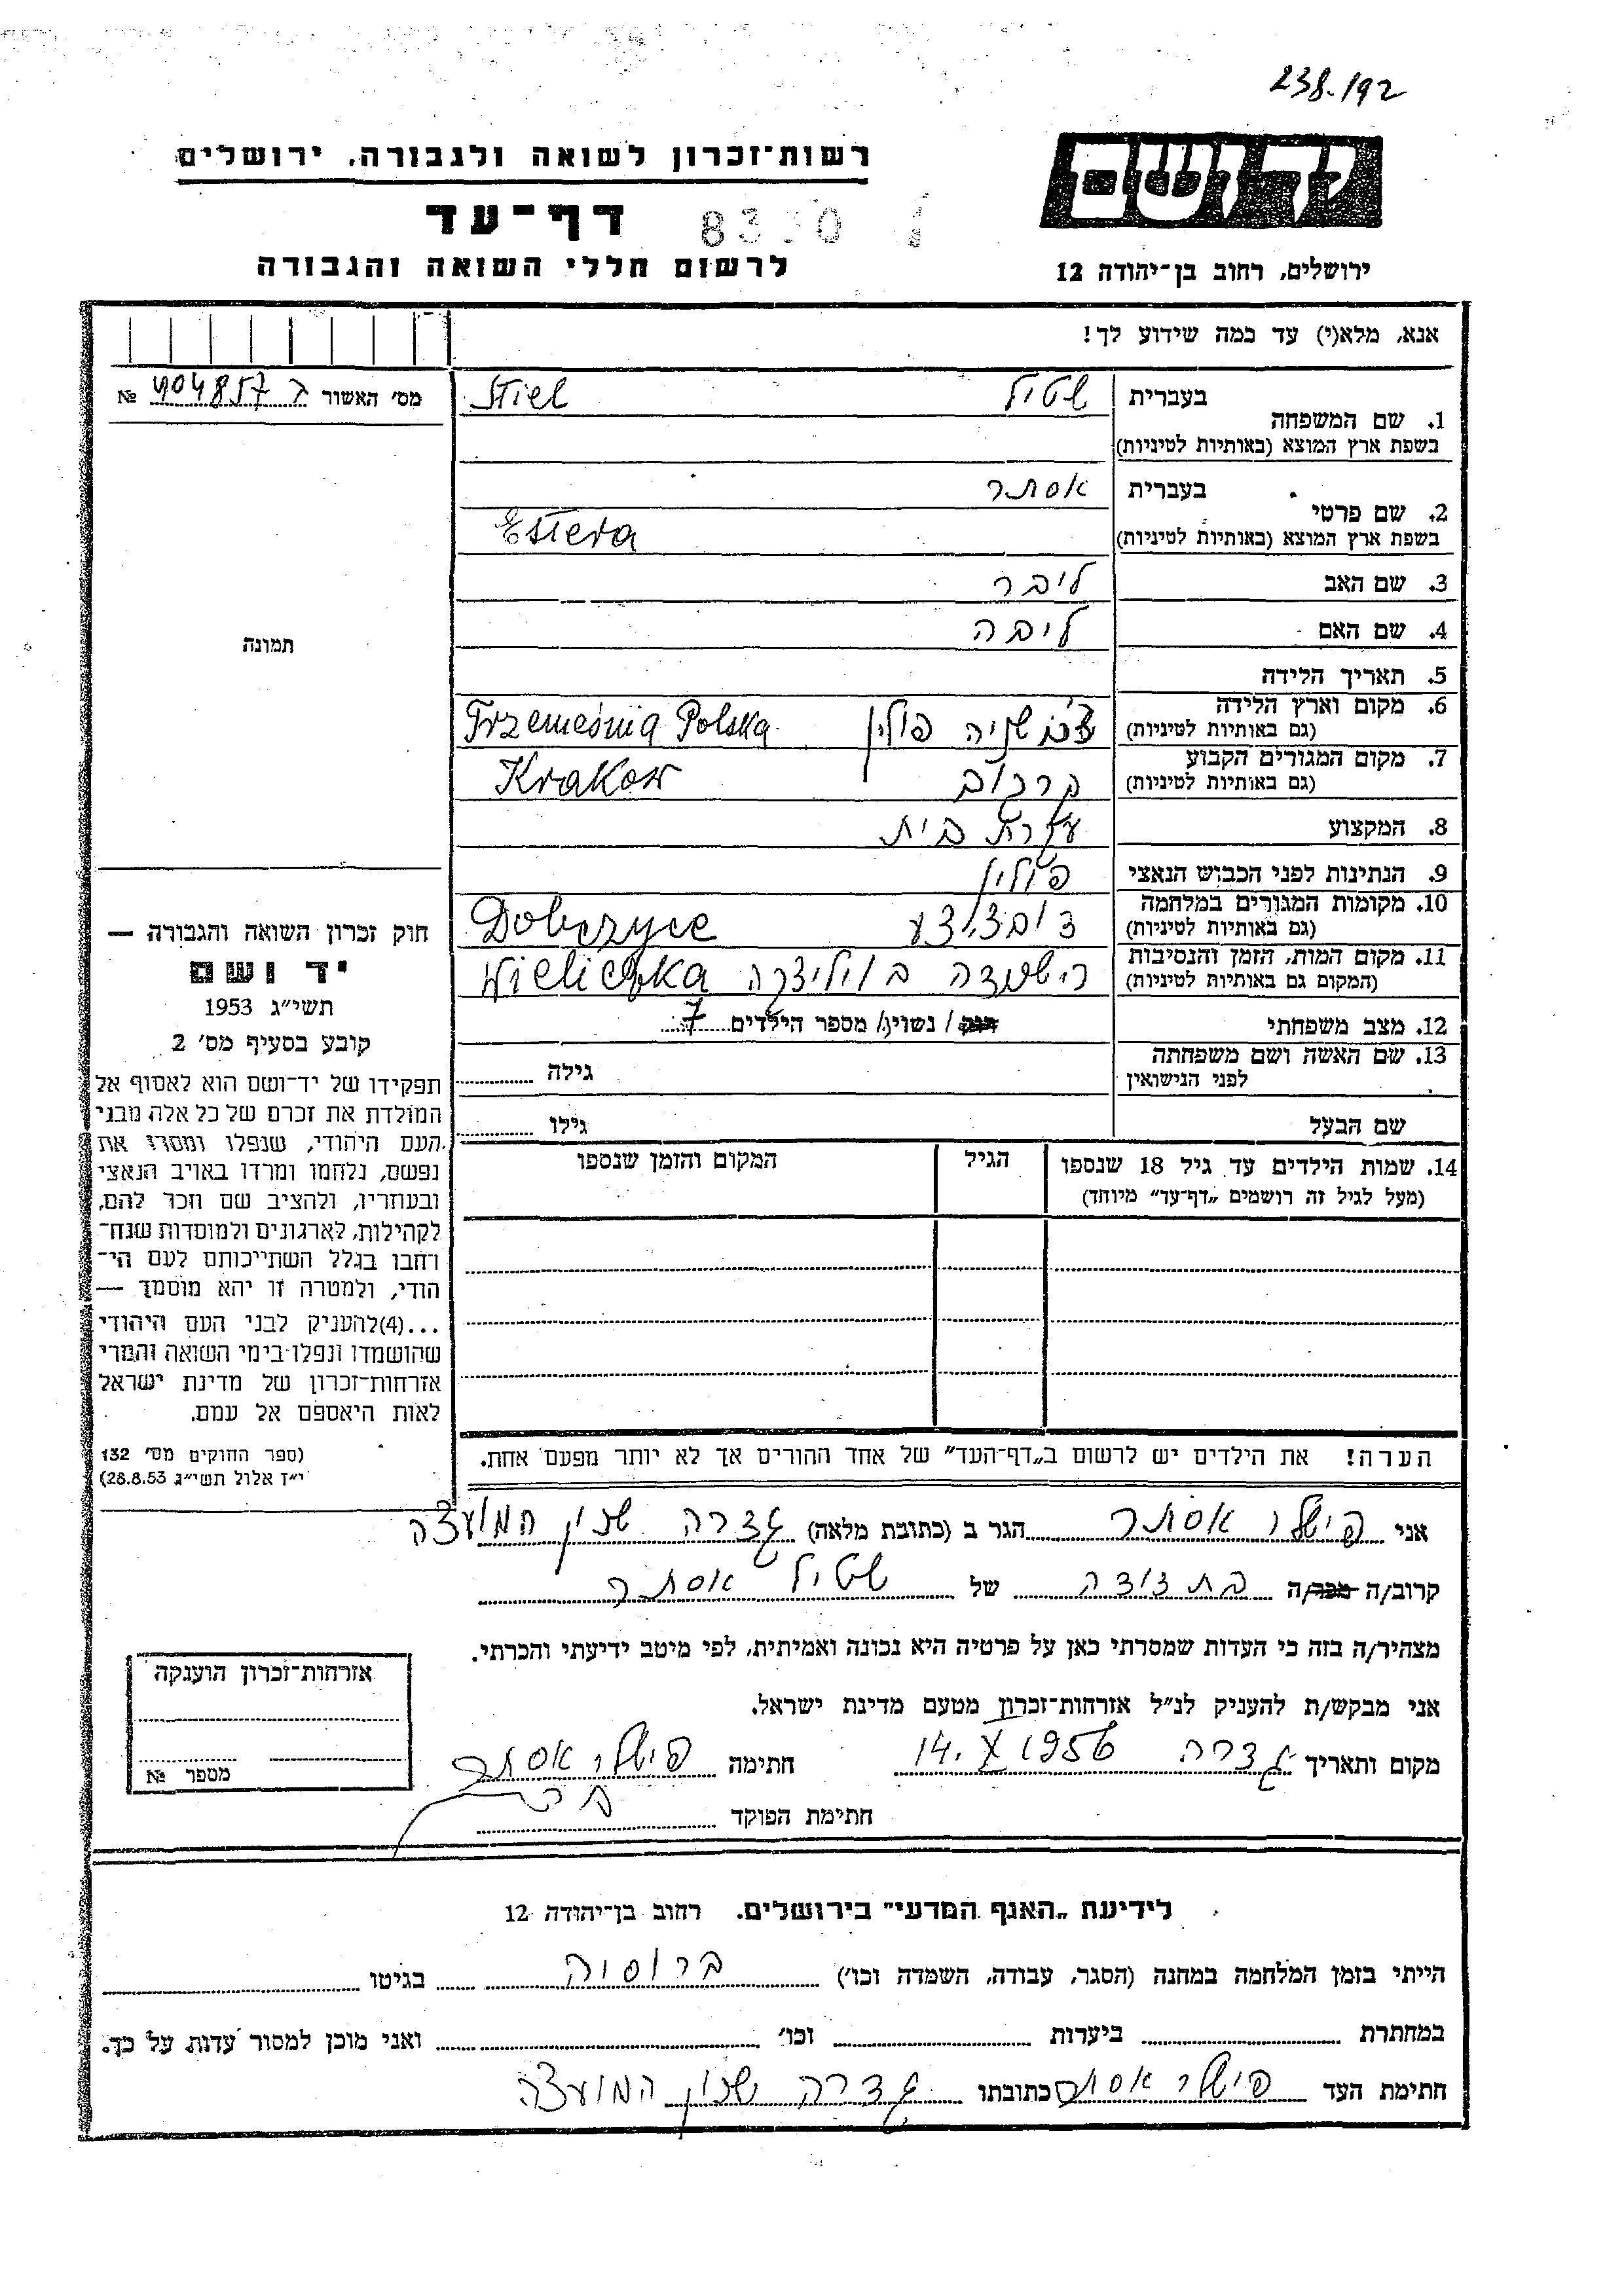 238/192
רשות־זכרון לשואה ולגבורה, ירושלים
יד ושם
דף־עד
ירושלים, רחוב בן־יהודה 12
לרשום חללי השואה והגבורה
אנא, מלא(י) עד כמה שידוע לך!
מס' האשור № 404857
1. שם המשפחה
בעברית שטיל Stiel
בשפת ארץ המוצא (באותיות לטיניות)
2. שם פרטי
בעברית אסתר
בשפת ארץ המוצא (באותיות לטיניות) Estera
3. שם האב ליבר
4. שם האם ליבה
5. תאריך הלידה
6. מקום וארץ הלידה
(גם באותיות לטיניות) פולין Trzemeśnia Polska
7. מקום המגורים הקבוע
(גם באותיות לטיניות) קרכוב Krakow
8. המקצוע עקרת בית
9. הנתינות לפני הכבוש הנאצי פולין
10. מקומות המגורים במלחמה
(גם באותיות לטיניות) Dobczyce
11. מקום המות, הזמן והנסיבות
(המקום גם באותיות לטיניות) Wieliczka
12. מצב משפחתי רווק / נשוי / מספר הילדים 7
13. שם האשה ושם משפחתה
לפני הנישואין
גילה
שם הבעל גילו
14. שמות הילדים עד גיל 18 שנספו
(מעל לגיל זה רושמים „דף־עד" מיוחד)
הגיל
המקום והזמן שנספו
הערה! את הילדים יש לרשום ב„דף־העד" של אחד ההורים אך לא יותר מפעם אחת.
תמונה
חוק זכרון השואה והגבורה —
יד ושם
תשי"ג 1953
קובע בסעיף מס' 2
תפקידו של יד־ושם הוא לאסוף אל
המולדת את זכרם של כל אלה מבני
העם היהודי, שנפלו ומסרו את
נפשם, נלחמו ומרדו באויב הנאצי
ובעוזריו, ולהציב שם וזכר להם,
לקהילות, לארגונים ולמוסדות שנח־
רחבו בגלל השתייכותם לעם הי־
הודי, ולמטרה זו יהא מוסמך —
...(4)להעניק לבני העם היהודי
שהושמדו ונפלו בימי השואה והמרי
אזרחות־זכרון של מדינת ישראל
לאות היאספם אל עמם.
(ספר החוקים מס' 132
י"ז אלול תשי"ג 28.8.53)
אני פישלר אסתר הגר ב (כתובת מלאה) גדרה שכון המועצה
קרוב/ה מכר/ה בת דודה של שטיל אסתר
מצהיר/ה בזה כי העדות שמסרתי כאן על פרטיה היא נכונה ואמיתית, לפי מיטב ידיעתי והכרתי.
אני מבקש/ת להעניק לנ"ל אזרחות־זכרון מטעם מדינת ישראל.
מקום ותאריך גדרה 14. X 1956 חתימה פישלר אסתר
חתימת הפוקד
אזרחות־זכרון הוענקה
מספר №
לידיעת „האגף המדעי" בירושלים, רחוב בן־יהודה 12
הייתי בזמן המלחמה במחנה (הסגר, עבודה, השמדה וכו') ברוסיה בגיטו
במחתרת ביערות וכו' ואני מוכן למסור עדות על כך.
חתימת העד פישלר אסתר כתובתו גדרה שכון המועצה